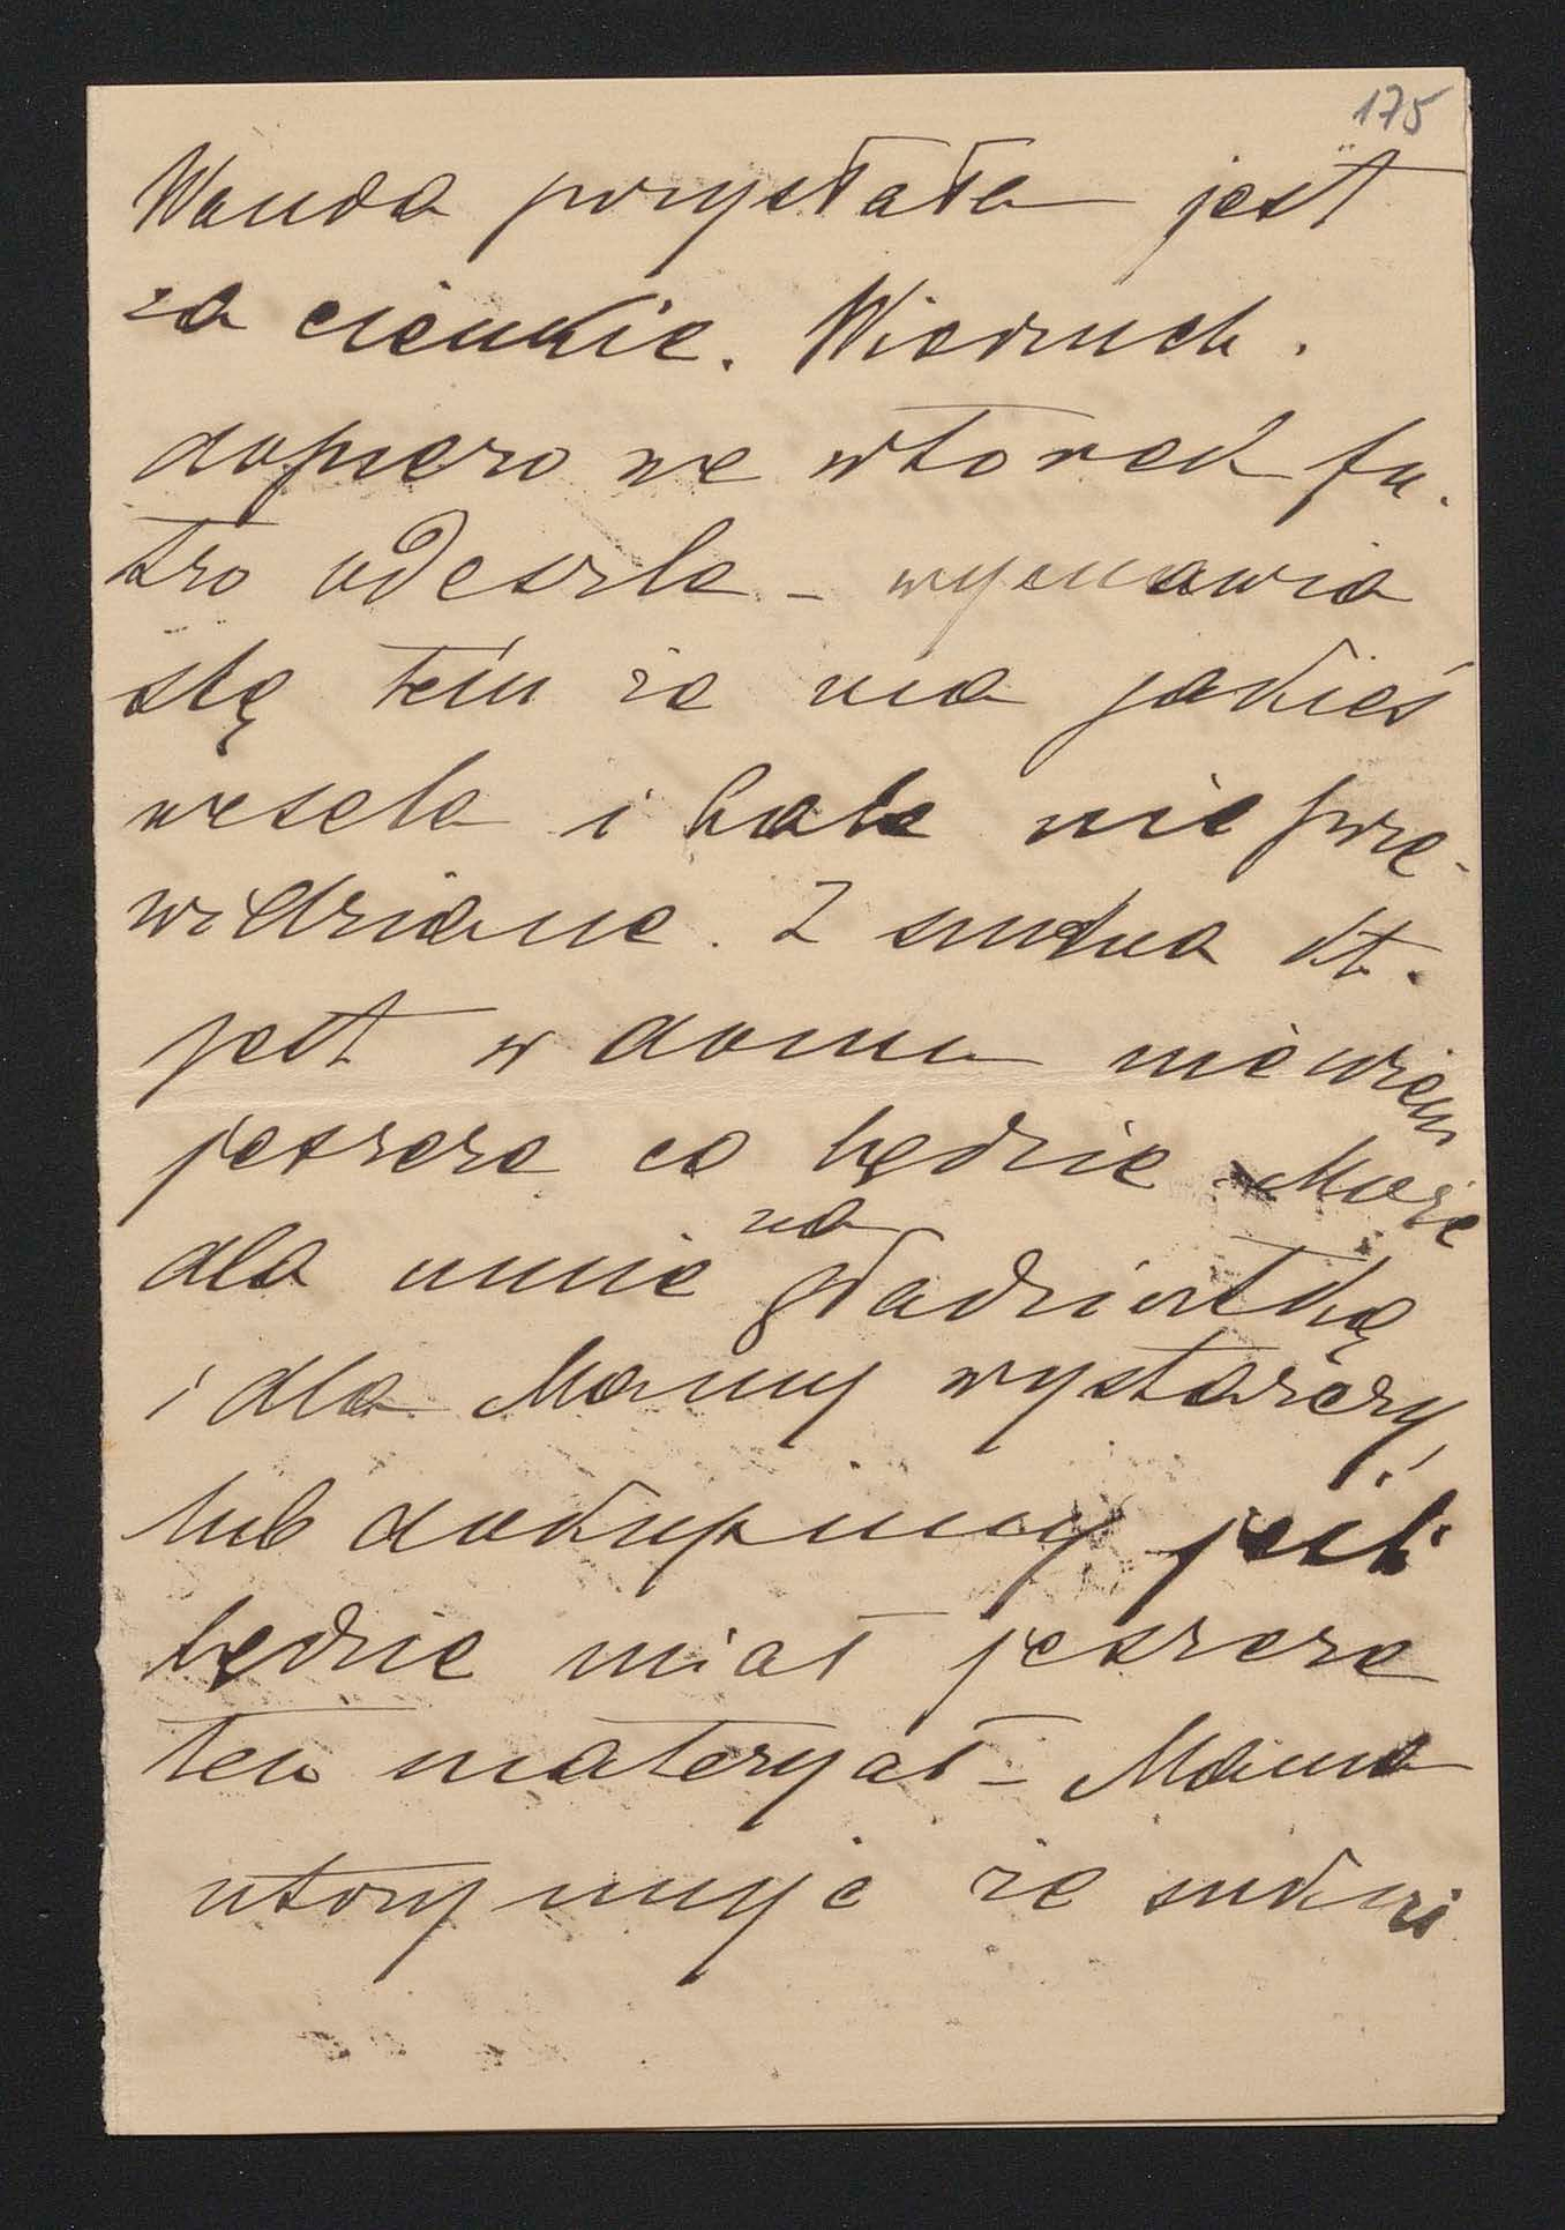 175
Wanda przysłała jest
za cienkie. Wiedruch.
dopiero we wtorek fu-
tro odeszle - wymawia
się tém że ma jakieś
wesela i bale nieprze-
widziane. Z sukna kt.
jest w domu nie wiem
jeszcze co będzie Może
dla mnie na
i dla Mamy wystarczy,
lub dokupimy jeśli
będzie miał jeszcze
ten materyał - Mama
utrzymuje że sukni